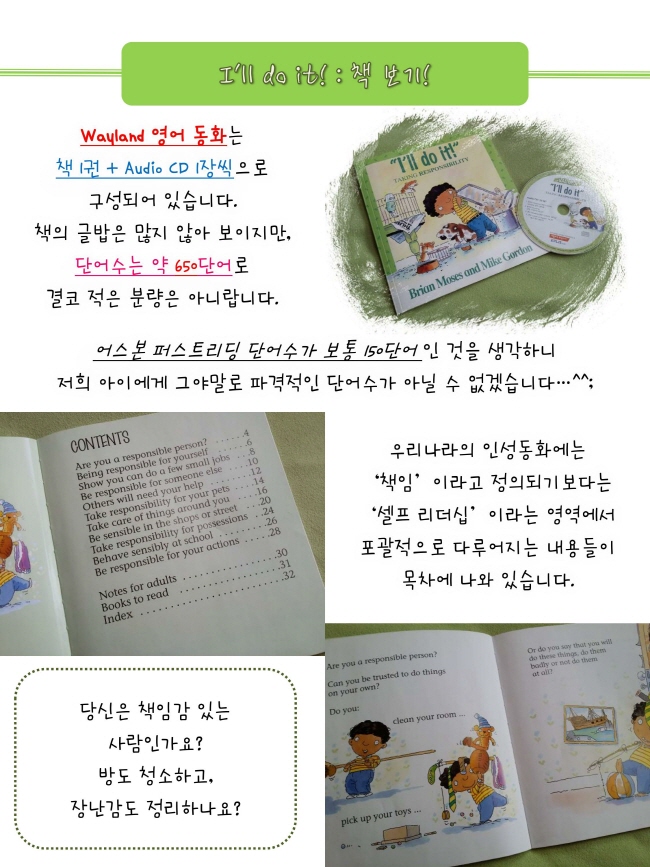 I'll do it! : 책 보기!
Wayland 영어 동화는
책 1권 + Audio CD 1장씩으로
구성되어 있습니다.
책의 글밥은 많지 않아 보이지만,
단어수는 약 650단어로
결코 적은 분량은 아니랍니다.
"I'll do it!"
TAKING RESPONSIBILITY
Brian Moses and Mike Gordon
"I'll do it"
어스본 퍼스트리딩 단어수가 보통 150단어인 것을 생각하니
저희 아이에게 그야말로 파격적인 단어수가 아닐 수 없겠습니다...^^;
CONTENTS
Are you a responsible person? ......4
Being responsible for yourself ......6
Show you can do a few small jobs ...8
Be responsible for someone else ....10
Others will need your help ........12
Take responsibility for your pets ...14
Take care of things around you ....16
Be sensible in the shops or street ...20
Take responsibility for possessions ...24
Behave sensibly at school ........26
Be responsible for your actions .....28
Notes for adults ...............30
Books to read ...............31
Index ...............32
우리나라의 인성동화에는
'책임' 이라고 정의되기보다는
'셀프 리더십' 이라는 영역에서
포괄적으로 다루어지는 내용들이
목차에 나와 있습니다.
당신은 책임감 있는
사람인가요?
방도 청소하고,
장난감도 정리하나요?
Are you a responsible person?
Can you be trusted to do things
on your own?
Do you:
clean your room ...
pick up your toys ...
Or do you say that you will
do these things, do them
badly or not do them
at all?